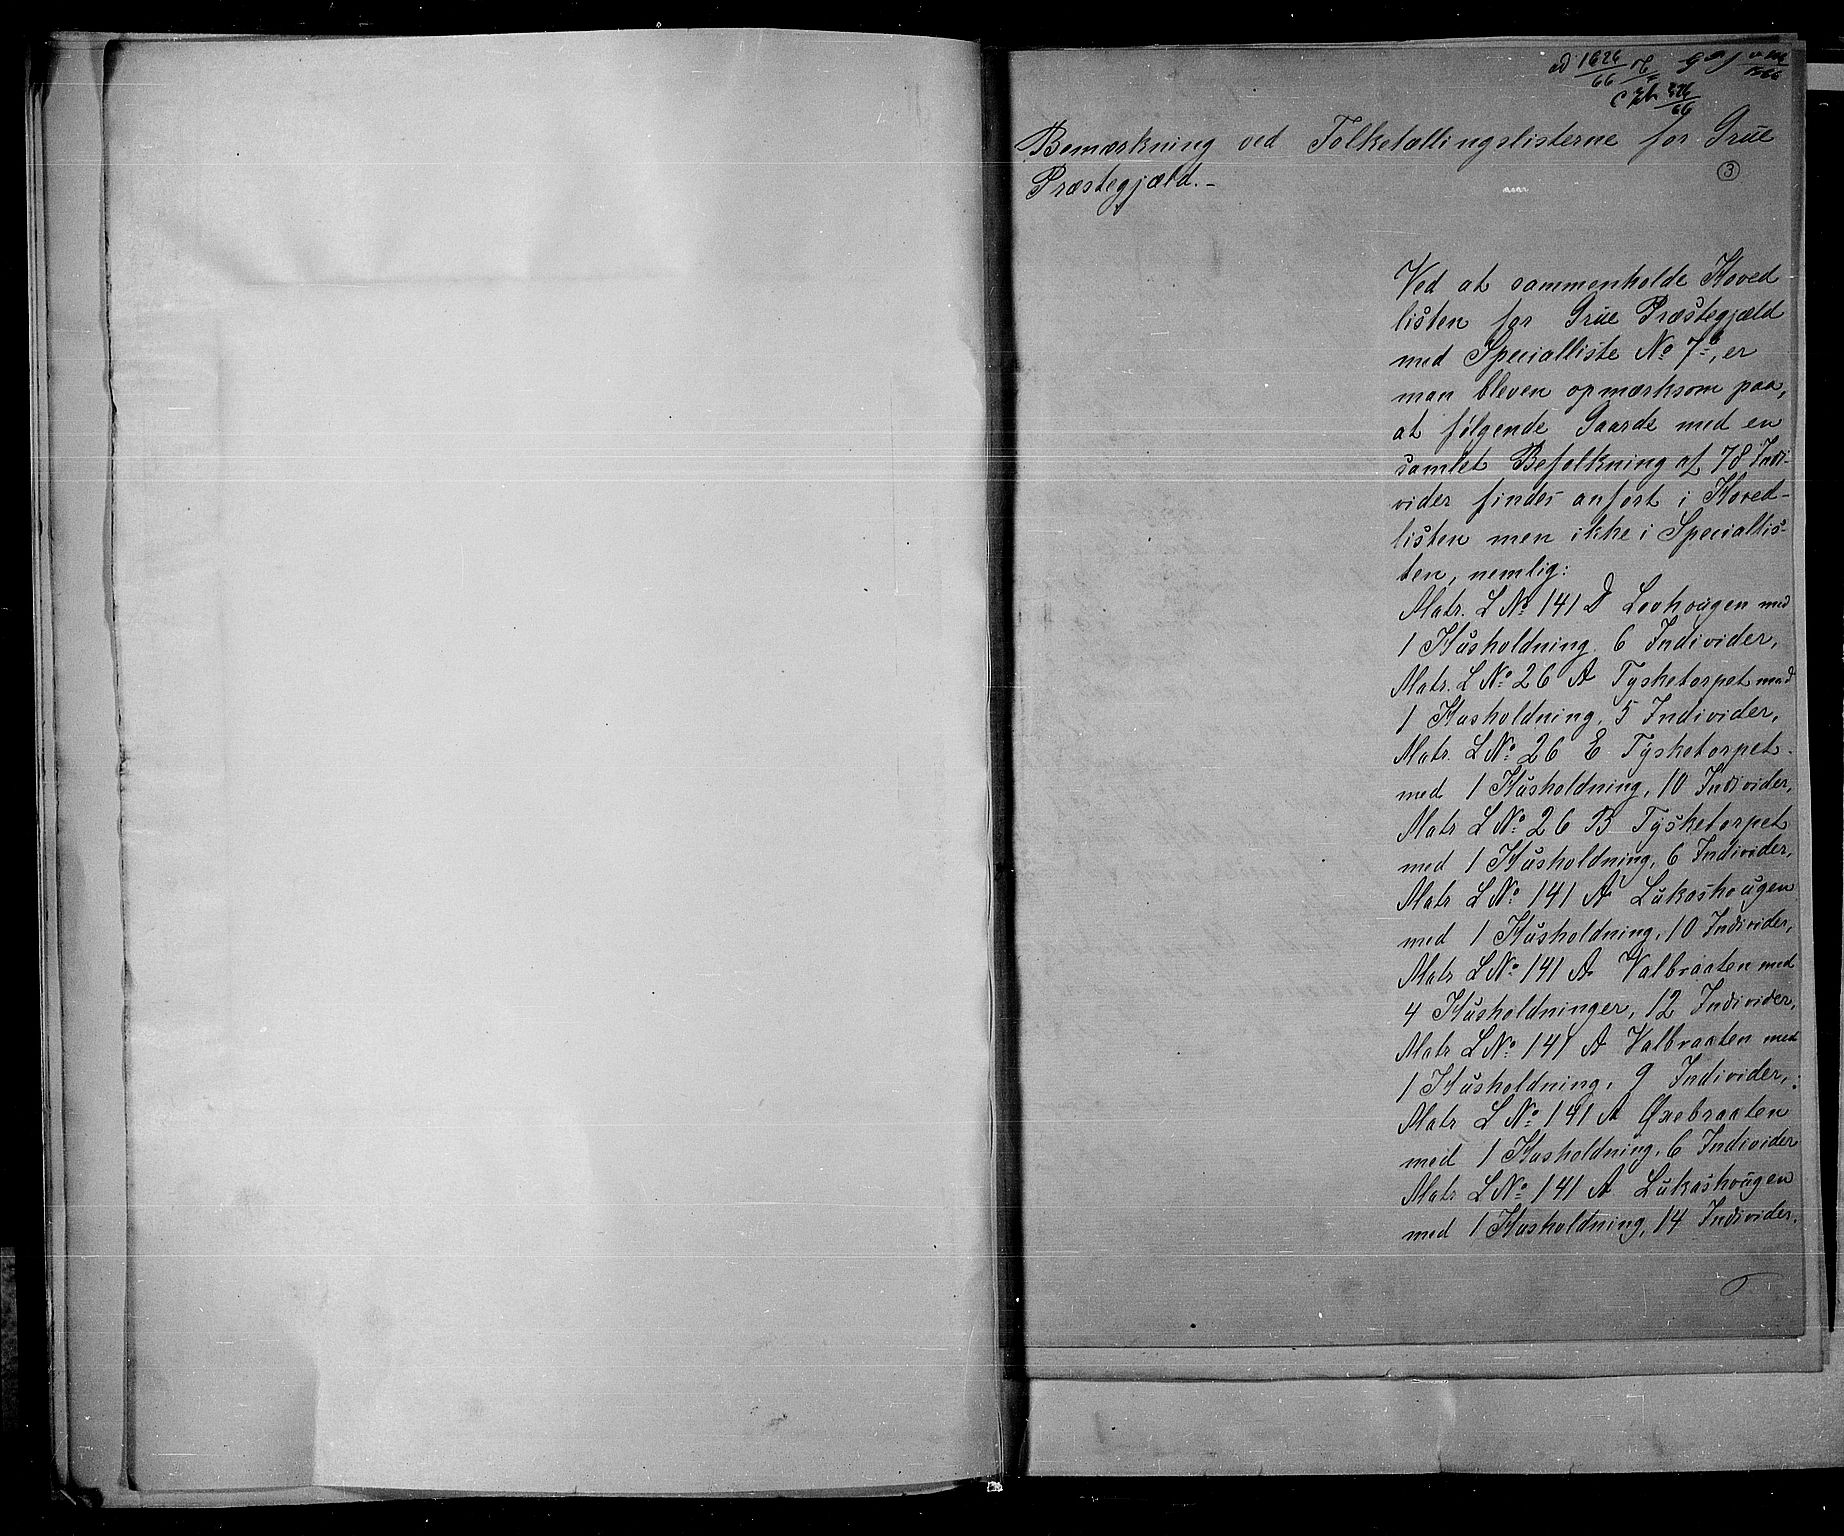 ad 1626/66
66
Bemærkning ved Folketællingslisterne for Grue
Præstegjæld.-
3
Ved at sammenholde Hoved
listen for Grue Præstegjæld
med Specialliste No 7b, er
man bleven opmærksom paa,
at følgende Gaarde med en
samlet Befolkning af 78 Indi-
vider findes anført i Hoved-
listen men ikke i Speciallis-
ten, nemlig:
Matr. L No 141 D Lovhougen med
1 Husholdning. 6 Individer,
Matr. L No 26 A Tysketorpet med
1 Husholdning, 5 Individer,
Matr. L No 26 E Tysketorpet
med 1 Husholdning, 10 Individer,
Matr L No 26 B Tysketorpet
med 1 Husholdning, 6 Individer,
Matr L No 141 A Lukashougen
med 1 Husholdning, 10 Individer,
Matr L No 141 A Valbraaten med
4 Husholdninger, 12 Individer,
Matr L No 141 A Valbraaten med
1 Husholdning, 9 Individer,
Matr L No 141 A Øxebraaten
med 1 Husholdning, 6 Individer
Matr L No 141 A Lukashougen
med 1 Husholdning, 14 Individer.